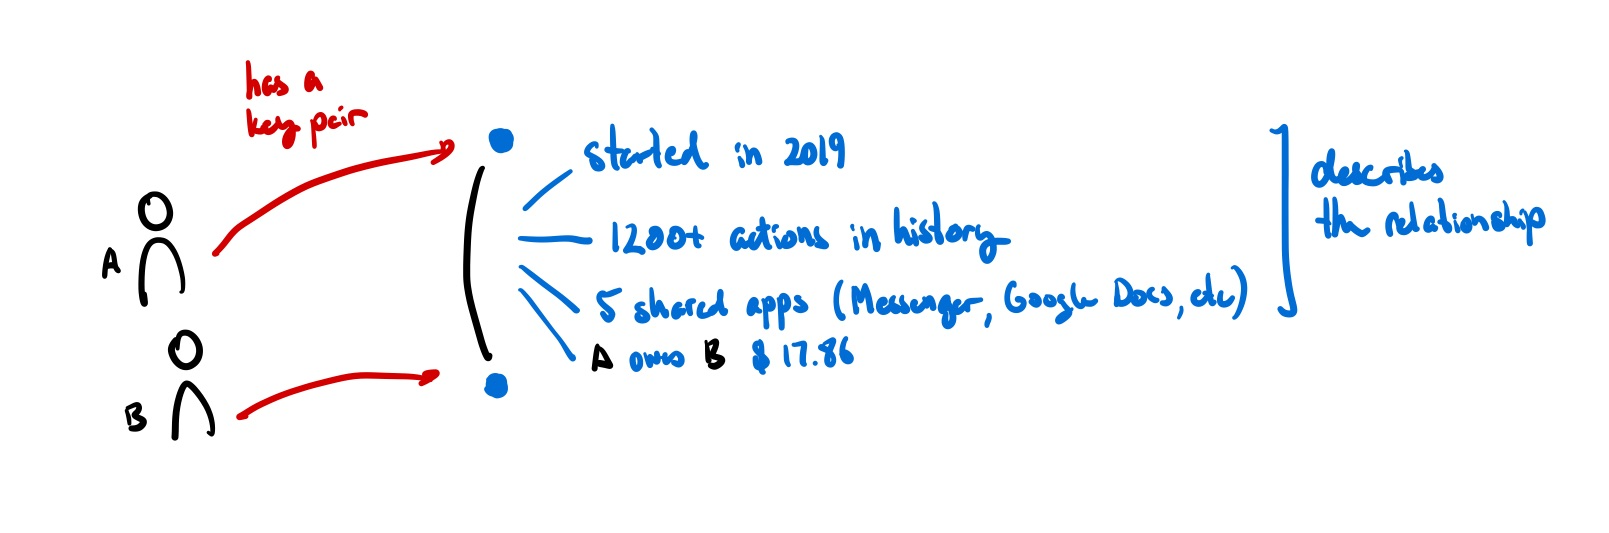 has a
key pair
started in 2019
1200+ actions in history
5 shared apps (Messenger, Google Docs, etc)
A owes B $17.86
describes
the relationship
A
B